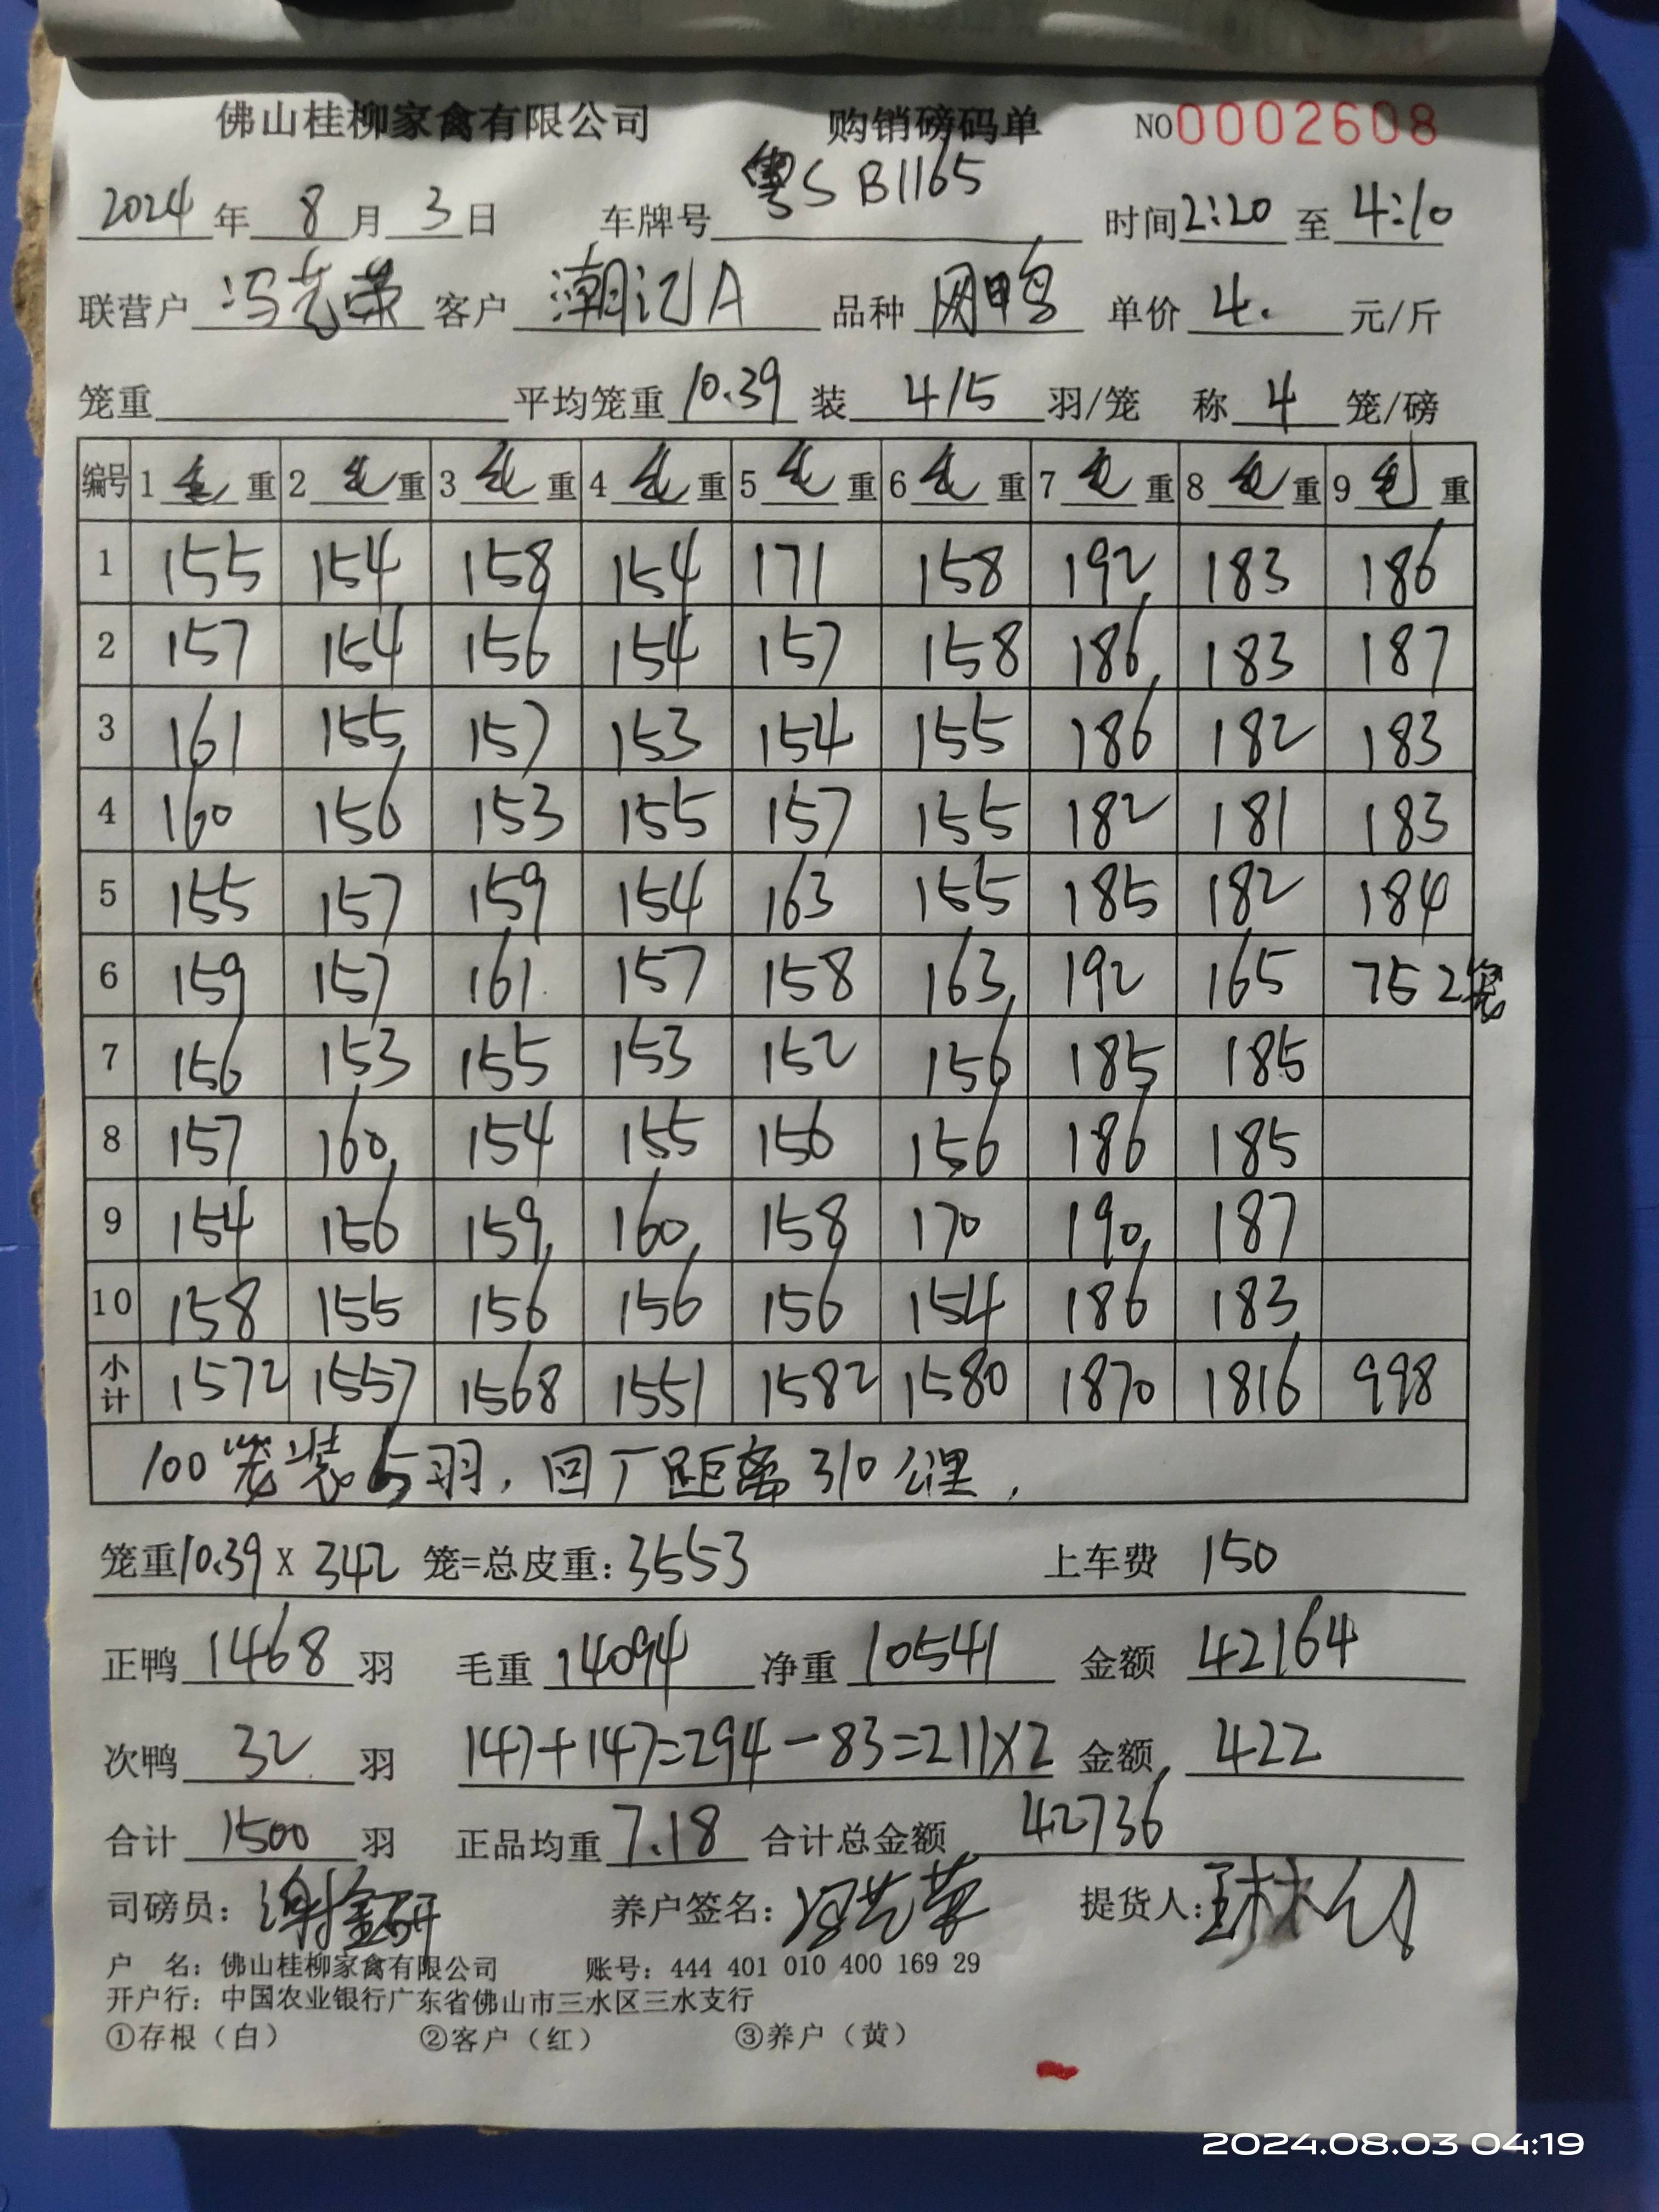 佛山桂柳家禽有限公司 购销磅码单 NO0002608
2024年8月3日 车牌号粤SB1165 时间2:20至4:10
联营户 冯芑荣 客户 潮记A 品种 网鸭 单价 4. 元/斤
笼重 平均笼重10.39 装 4/5 羽/笼 称 4 笼/磅
编号 1毛重 2毛重 3毛重 4毛重 5毛重 6毛重 7毛重 8毛重 9毛重
1 155 154 158 154 171 158 192 183 186
2 157 154 156 154 157 158 186 183 187
3 161 155 157 153 154 155 186 182 183
4 160 156 153 155 157 155 182 181 183
5 155 157 159 154 163 155 185 182 184
6 159 157 161 157 158 163 192 165 75 2笼
7 156 153 155 153 152 156 185 185
8 157 160 154 155 156 156 186 185
9 154 156 159 160 158 170 190 187
10 158 155 156 156 156 154 186 183
小计 1572 1557 1568 1551 1582 1580 1870 1816 998
100笼装5羽,回厂距离310公里.
笼重10.39X342笼=总皮重:3553 上车费 150
正鸭 1468 羽 毛重 14094 净重 10541 金额 42164
次鸭 32 羽 147+147=294-83=211X2 金额 422
合计 1500 羽 正品均重 7.18 合计总金额 42736
司磅员: 养户签名:冯芑荣 提货人:
户 名:佛山桂柳家禽有限公司 账号:444 401 010 400 169 29
开户行:中国农业银行广东省佛山市三水区三水支行
①存根(白) ②客户(红) ③养户(黄)
2024.08.03 04:19